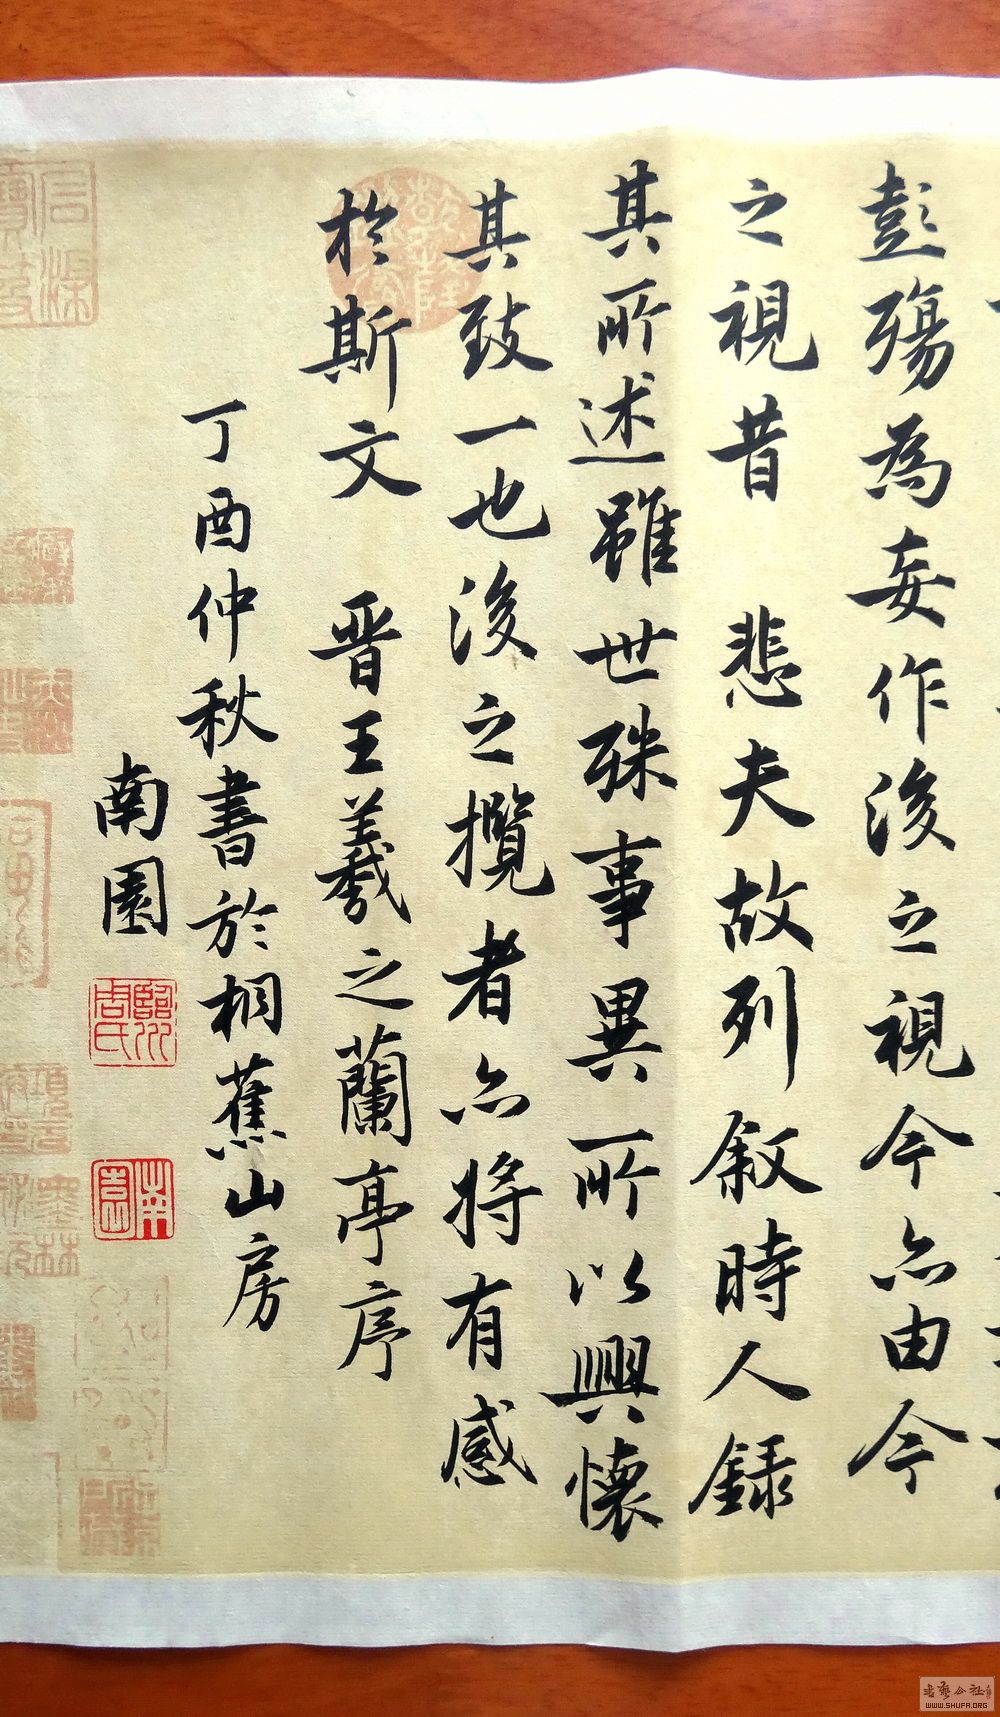 彭殤為妄作後之視今亦由今
之視昔 悲夫故列叙時人錄
其所述雖世殊事異所以興懷
其致一也後之攬者亦將有感
於斯文 晉王羲之蘭亭序
丁酉仲秋書於桐蕉山房
南園
臨川周氏
南園
書藝公社
WWW.SHUFA.ORG